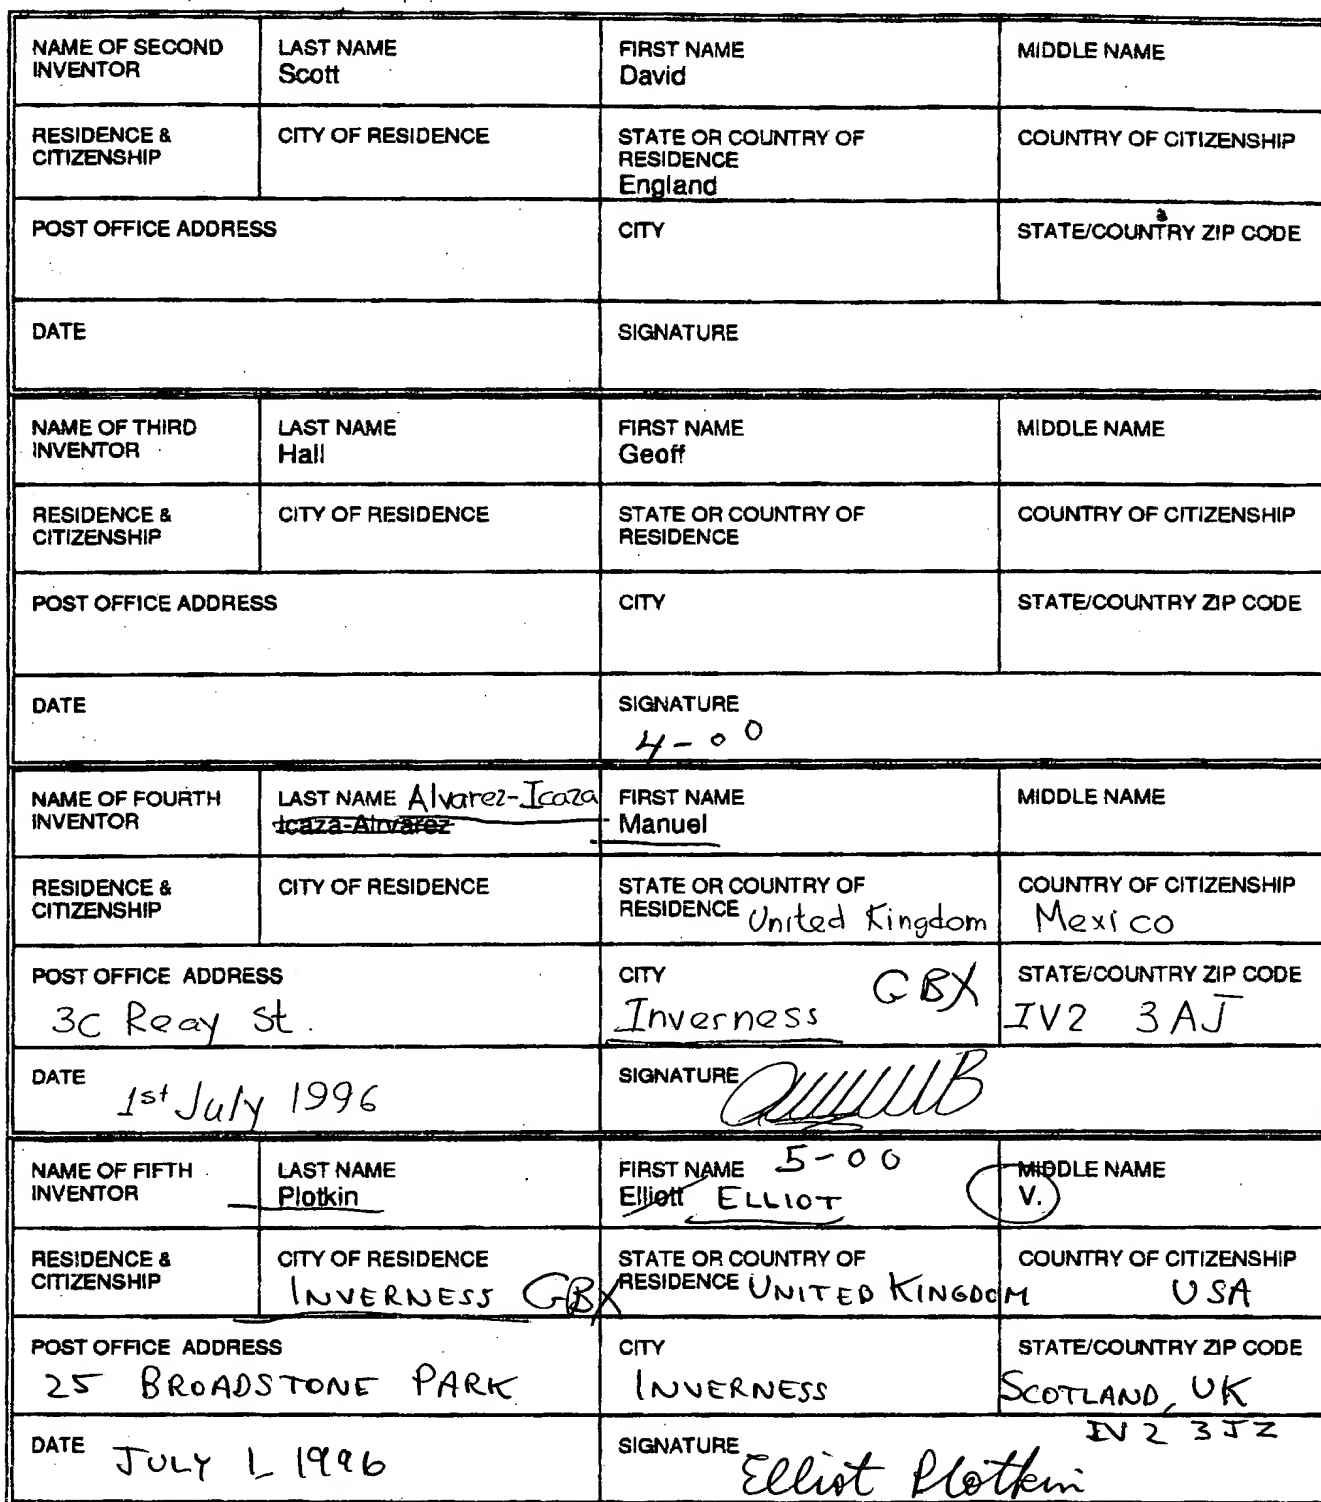 NAME OF SECOND INVENTOR
LAST NAME
Scott
FIRST NAME
David
MIDDLE NAME
RESIDENCE & CITIZENSHIP
CITY OF RESIDENCE
STATE OR COUNTRY OF RESIDENCE
England
COUNTRY OF CITIZENSHIP
POST OFFICE ADDRESS
CITY
STATE/COUNTRY ZIP CODE
DATE
SIGNATURE
NAME OF THIRD INVENTOR
LAST NAME
Hall
FIRST NAME
Geoff
MIDDLE NAME
RESIDENCE & CITIZENSHIP
CITY OF RESIDENCE
STATE OR COUNTRY OF RESIDENCE
COUNTRY OF CITIZENSHIP
POST OFFICE ADDRESS
CITY
STATE/COUNTRY ZIP CODE
DATE
SIGNATURE
4-00
NAME OF FOURTH INVENTOR
LAST NAME Alvarez-Icaza
Icaza-Alrvarez
FIRST NAME
Manuel
MIDDLE NAME
RESIDENCE & CITIZENSHIP
CITY OF RESIDENCE
STATE OR COUNTRY OF RESIDENCE United Kingdom
COUNTRY OF CITIZENSHIP
Mexico
POST OFFICE ADDRESS
3C Reay St.
CITY
Inverness GBX
STATE/COUNTRY ZIP CODE
IV2 3AJ
DATE 1st July 1996
SIGNATURE
NAME OF FIFTH INVENTOR
LAST NAME
Plotkin
FIRST NAME 5-00
Elliott ELLIOT
MIDDLE NAME
V.
RESIDENCE & CITIZENSHIP
CITY OF RESIDENCE
INVERNESS GBX
STATE OR COUNTRY OF RESIDENCE UNITED KINGDOM
COUNTRY OF CITIZENSHIP
USA
POST OFFICE ADDRESS
25 BROADSTONE PARK
CITY
INVERNESS
STATE/COUNTRY ZIP CODE
SCOTLAND, UK
IV2 3JZ
DATE JULY 1, 1996
SIGNATURE Elliot Plotkin